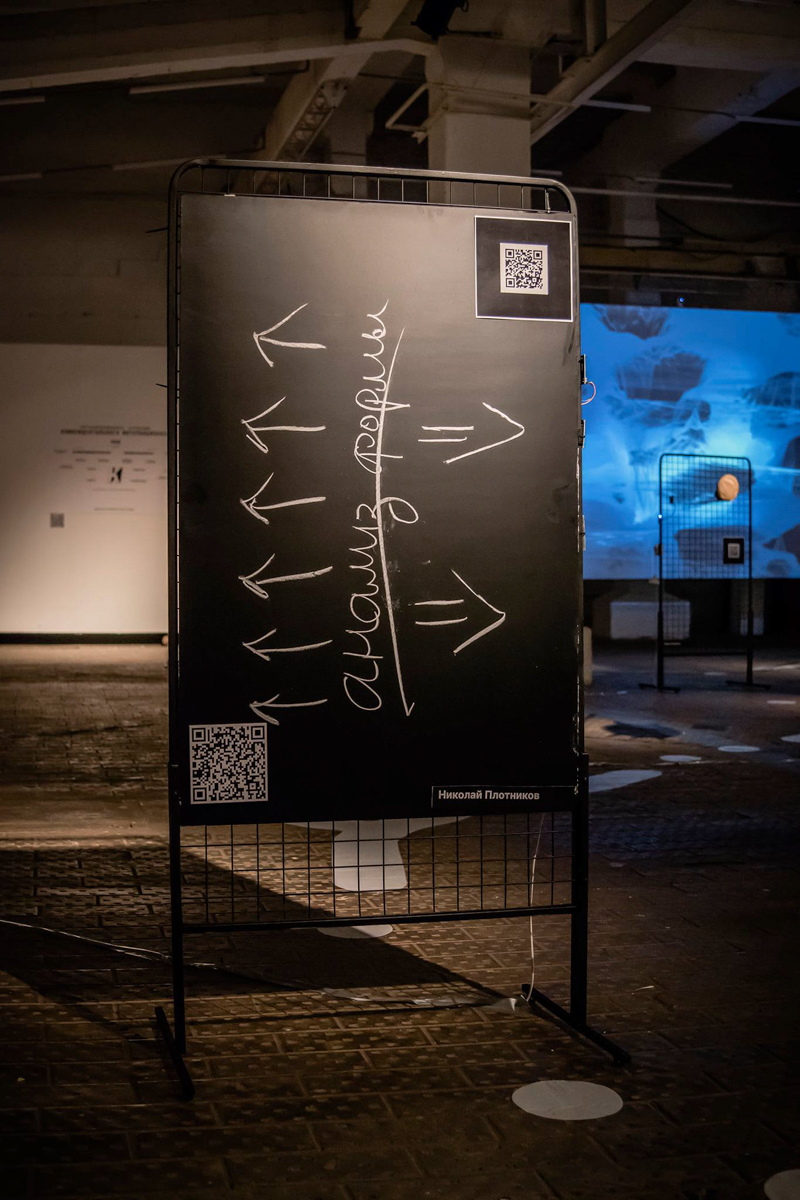 анализ формы
Николай Плотников